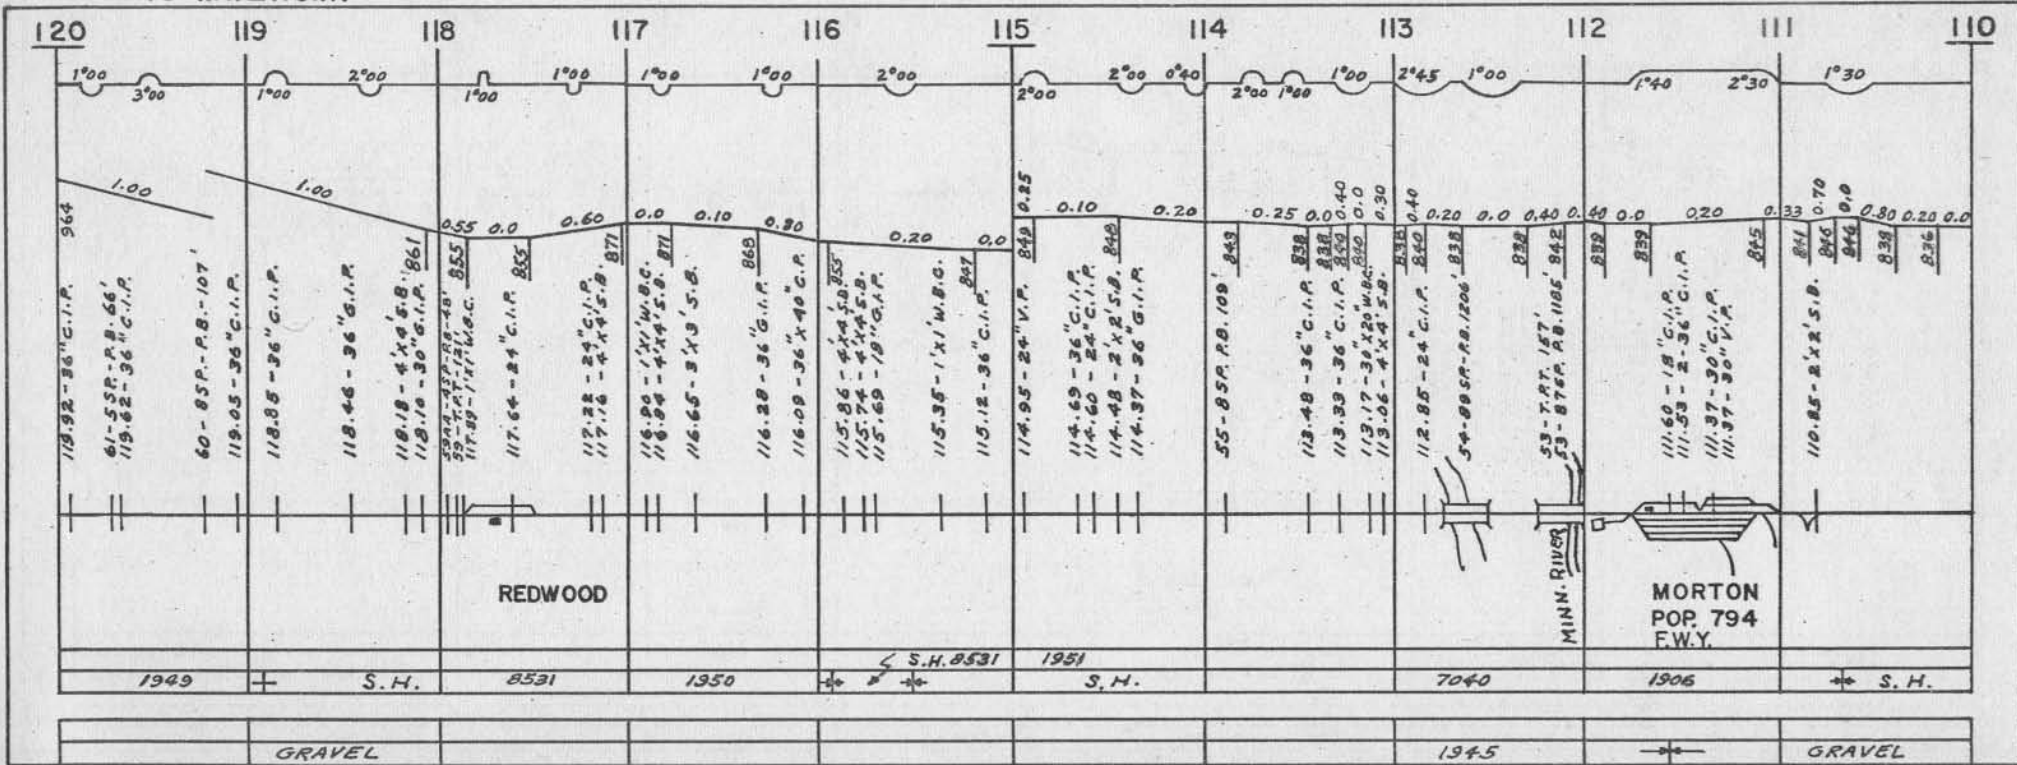 120 119 118 117 116 115 114 113 112 111 110
1°00 2°00 1°00 1°00 1°00 2°00 2°00 0°40 1°00 2°45 1°00 1°30
3°00 1°00 1°00 2°00 2°00 1°00 1°40 2°30
1.00 1.00 0.55 0.0 0.60 0.0 0.10 0.80 0.20 0.0 0.25 0.10 0.20 0.25 0.0 0.40 0.0 0.30 0.40 0.20 0.0 0.40 0.40 0.0 0.20 0.33 0.70 0.0 0.80 0.20 0.0
964 861 855 855 871 871 868 855 847 849 848 843 838 838 840 840 838 840 838 838 842 839 839 845 841 846 846 838 836
119.92-36"C.I.P.
61-5SP.-P.B-66'
119.62-36"C.I.P.
60-8SP.-P.B.-107'
119.05-36"C.I.P.
118.85-36"C.I.P.
118.46-36"G.I.P.
118.18-4'X4'S.B.
118.10-30"G.I.P.
59-T.P.T.-121'
117.89-1'X1'W.B.C.
117.64-24"C.I.P.
117.22-24"C.I.P.
117.16-4'X4'S.B.
116.90-1'X1'W.B.C.
116.84-4'X4'S.B.
116.65-3'X3'S.B.
116.28-36"G.I.P.
116.09-36"X40"C.P.
115.86-4'X4'S.B.
115.74-4'X4'S.B.
115.69-18"G.I.P.
115.35-1'X1'W.B.C.
115.12-36"C.I.P.
114.95-24"V.P.
114.69-36"C.I.P.
114.60-24"C.I.P.
114.48-2'X2'S.B.
114.37-36"G.I.P.
55-8SP. P.B. 109'
113.48-36"C.I.P.
113.33-36"C.I.P.
113.17-30"X20"W.B.C.
113.06-4'X4'S.B.
112.85-24"C.I.P.
54-89SP.-P.B.1206'
53-T.P.T. 157'
53-87SP. P.B. 1185'
111.60-18"C.I.P.
111.53-2-36"C.I.P.
111.37-30"C.I.P.
111.37-30"V.P.
110.85-2'X2'S.B.
REDWOOD
MINN. RIVER
MORTON
POP. 794
F.W.Y.
S.H. 8531 1951
1949 S.H. 8531 1950 S.H. 7040 1906 S.H.
GRAVEL 1945 GRAVEL